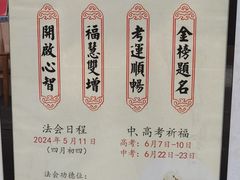 金榜題名
考運順暢
福慧雙增
開啟心智
法會日程
2024年5月11日
(四月初四)
中、高考祈福
高考: 6月7日-10日
中考: 6月22日-23日
法会功德位: